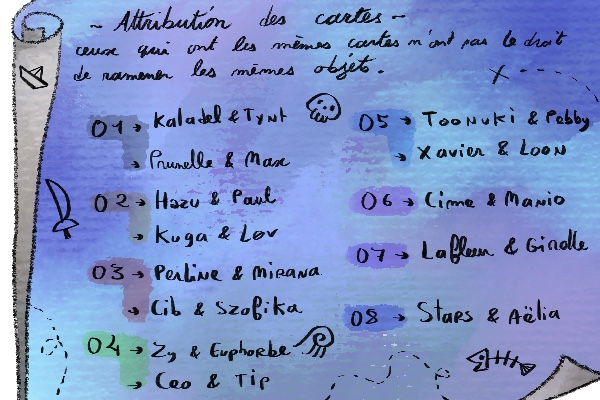 ~ Attribution des cartes ~
ceux qui ont les mêmes cartes n'ont pas le droit
de ramener les mêmes objets.
01 → Kaladel & Tynt
→ Prunelle & Max
02 → Hazu & Paul
→ Kuga & Lov
03 → Perline & Mirana
→ Cib & Szofika
04 → Zy & Euphorbe
→ Ceo & Tip
05 → Toonuki & Pebby
→ Xavier & Loon
06 → Cime & Manio
07 → & Girolle
08 → Stars & Aëlia